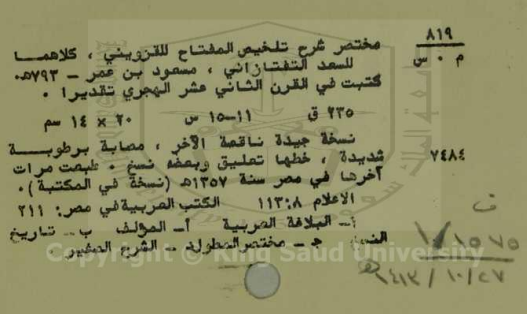 ٨١٩
م . س
مختصر شرح تلخيص المفتاح للقزويني ، كلاهما
للسعد التفتازاني ، مسعود بن عمر - ٧٩٣ھ.
كتبت في القرن الثاني عشر الهجري تقديرا .
٢٣٥ ق ١١-١٥ س ٢٠ × ١٤ سم
نسخة جيدة ناقصة الآخر ، مصابة برطوبة
٧٤٨٤ شديدة ، خطها تعليق وبعضه نسخ . طبعت مرات
آخرها في مصر سنة ١٣٥٧ھ (نسخة في المكتبة).
الاعلام ٨:١١٣ الكتب العربية في مصر: ٢١١
أ- البلاغة العربية أ- المؤلف ب- تاريخ
النسخ ج - مختصر المطول د - الشرح الصغير
ف
١٥٧٥/١
١٤١٣/١٠/٢٧ھ
Copyright © King Saud University